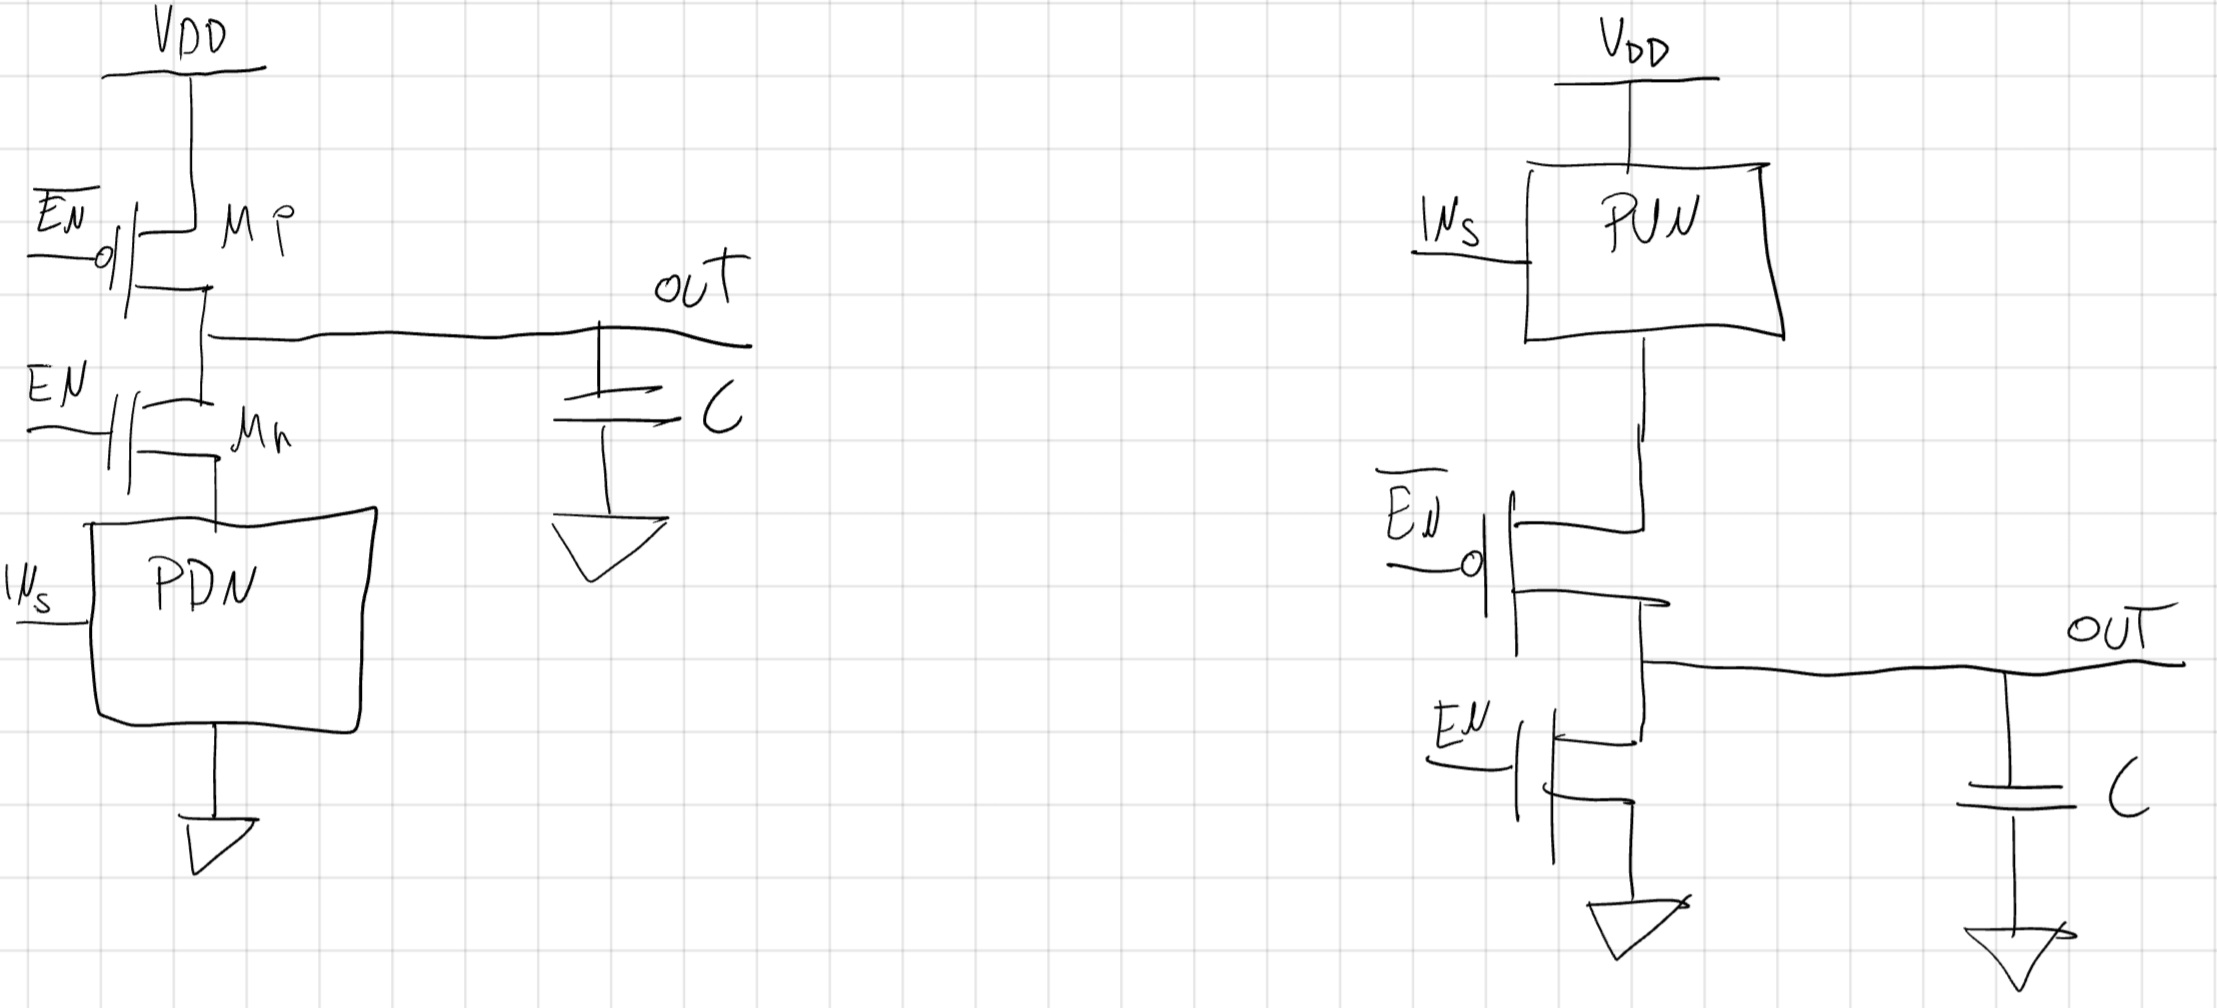 VDD
EN
Mp
OUT
EN
Mn
C
INs
PDN
VDD
INs
PUN
EN
OUT
EN
C